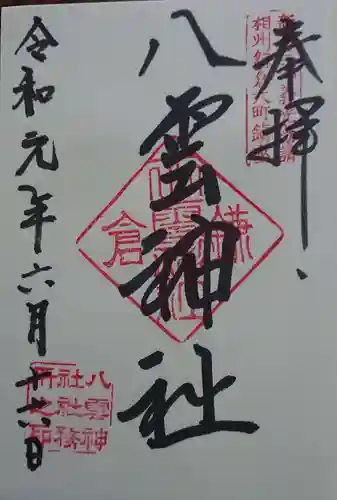 奉拝
八雲神社
令和元年六月十六日
鎌倉
八雲神
社社務
所之印